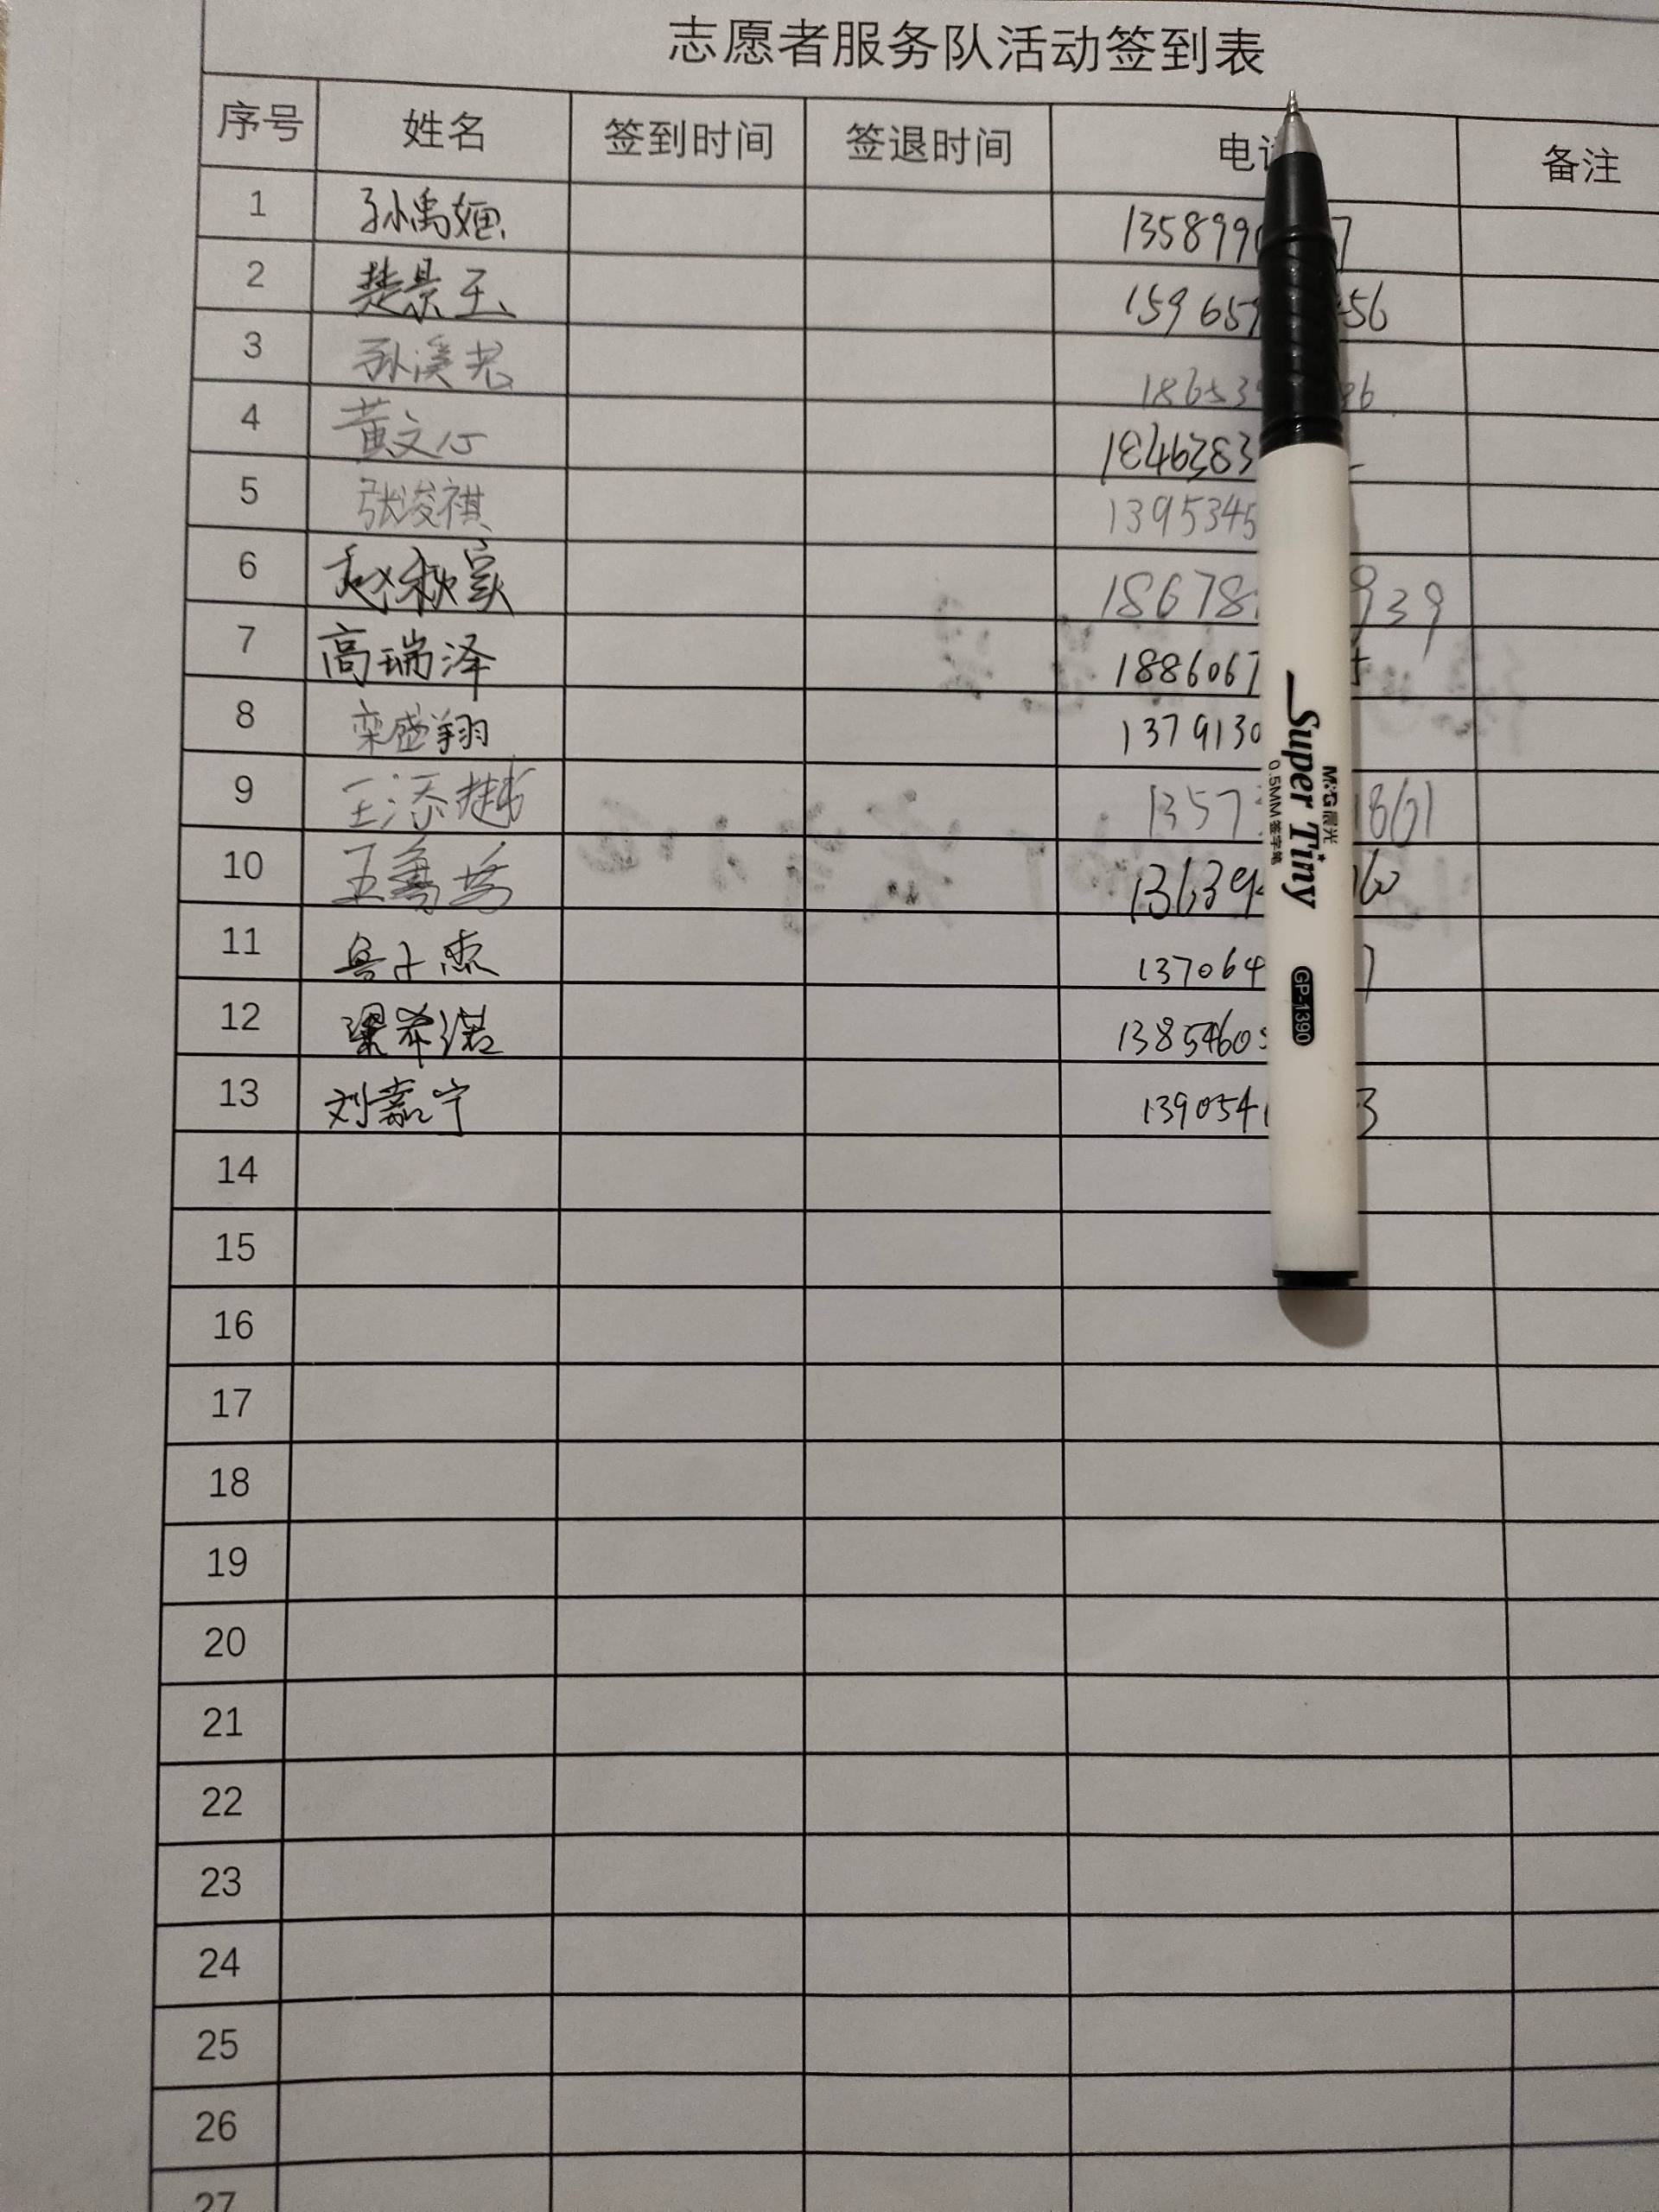 志愿者服务队活动签到表
序号 姓名 签到时间 签退时间 电 备注
1 孙禹 135899 7
2 楚景玉 159659 56
3 孙溪 186539 96
4 黄文心 1846283
5 张浚祺 1395345
6 赵秋实 18678 939
7 高瑞泽 1886067
8 栾盛翔 1379130
9 王添越 1357 1861
10 王 13639 60
11 鲁子杰 137064 7
12 梁希诺 1385460
13 刘嘉宁 139054 3
14
15
16
17
18
19
20
21
22
23
24
25
26
27
M&G晨光
Super Tiny
0.5MM 签字笔
GP-1390